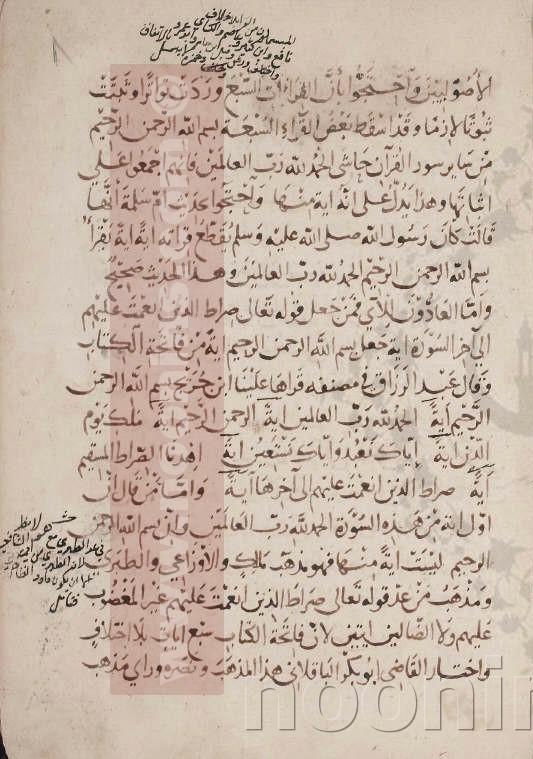 الأصوليين واحتجوا بأن القراءات السبع وردت تواترا وثبتت
ثبوتا لازما وقد اسقط بعض القراء السبعة بسم الله الرحمن الرحيم
من ساير سور القرآن حاشى الحمد لله رب العالمين فانهم اجمعوا على
اثباتها وهذا يدل على انه اية منها واحتجوا بحديث ام سلمة انها
قالت كان رسول الله صلى الله عليه وسلم يقطع قراته اية اية يقرأ
بسم الله الرحمن الرحيم الحمد لله رب العالمين وهذا الحديث صحيح
واما العادون للآي فمن جعل قوله تعالى صراط الذين انعمت عليهم
الى اخر السورة اية جعل بسم الله الرحمن الرحيم اية من فاتحة الكتاب
وقال عبد الرزاق في مصنفه قراها علينا ابن جريج بسم الله الرحمن
الرحيم اية الحمد لله رب العالمين اية الرحمن الرحيم اية ملك يوم
الدين اية إياك نعبد وإياك نستعين اية اهدنا الصراط المستقيم
اية صراط الذين انعمت عليهم الى آخرها اية وامّا من قال ان
اول اية من هذه السورة الحمد لله رب العالمين وان بسم الله الرحمن
الرحيم ليست اية منها فهو مذهب مالك والاوزاعي والطبري
ومذهب من عد قوله تعالى صراط الذين انعمت عليهم غير المغضوب
عليهم ولا الضالين ايتين لان فاتحة الكتاب سبع ايات بلا اختلاف
واختار القاضي ابو بكر الباقلاني هذا المذهب ونصره وراي مذهب
noonin